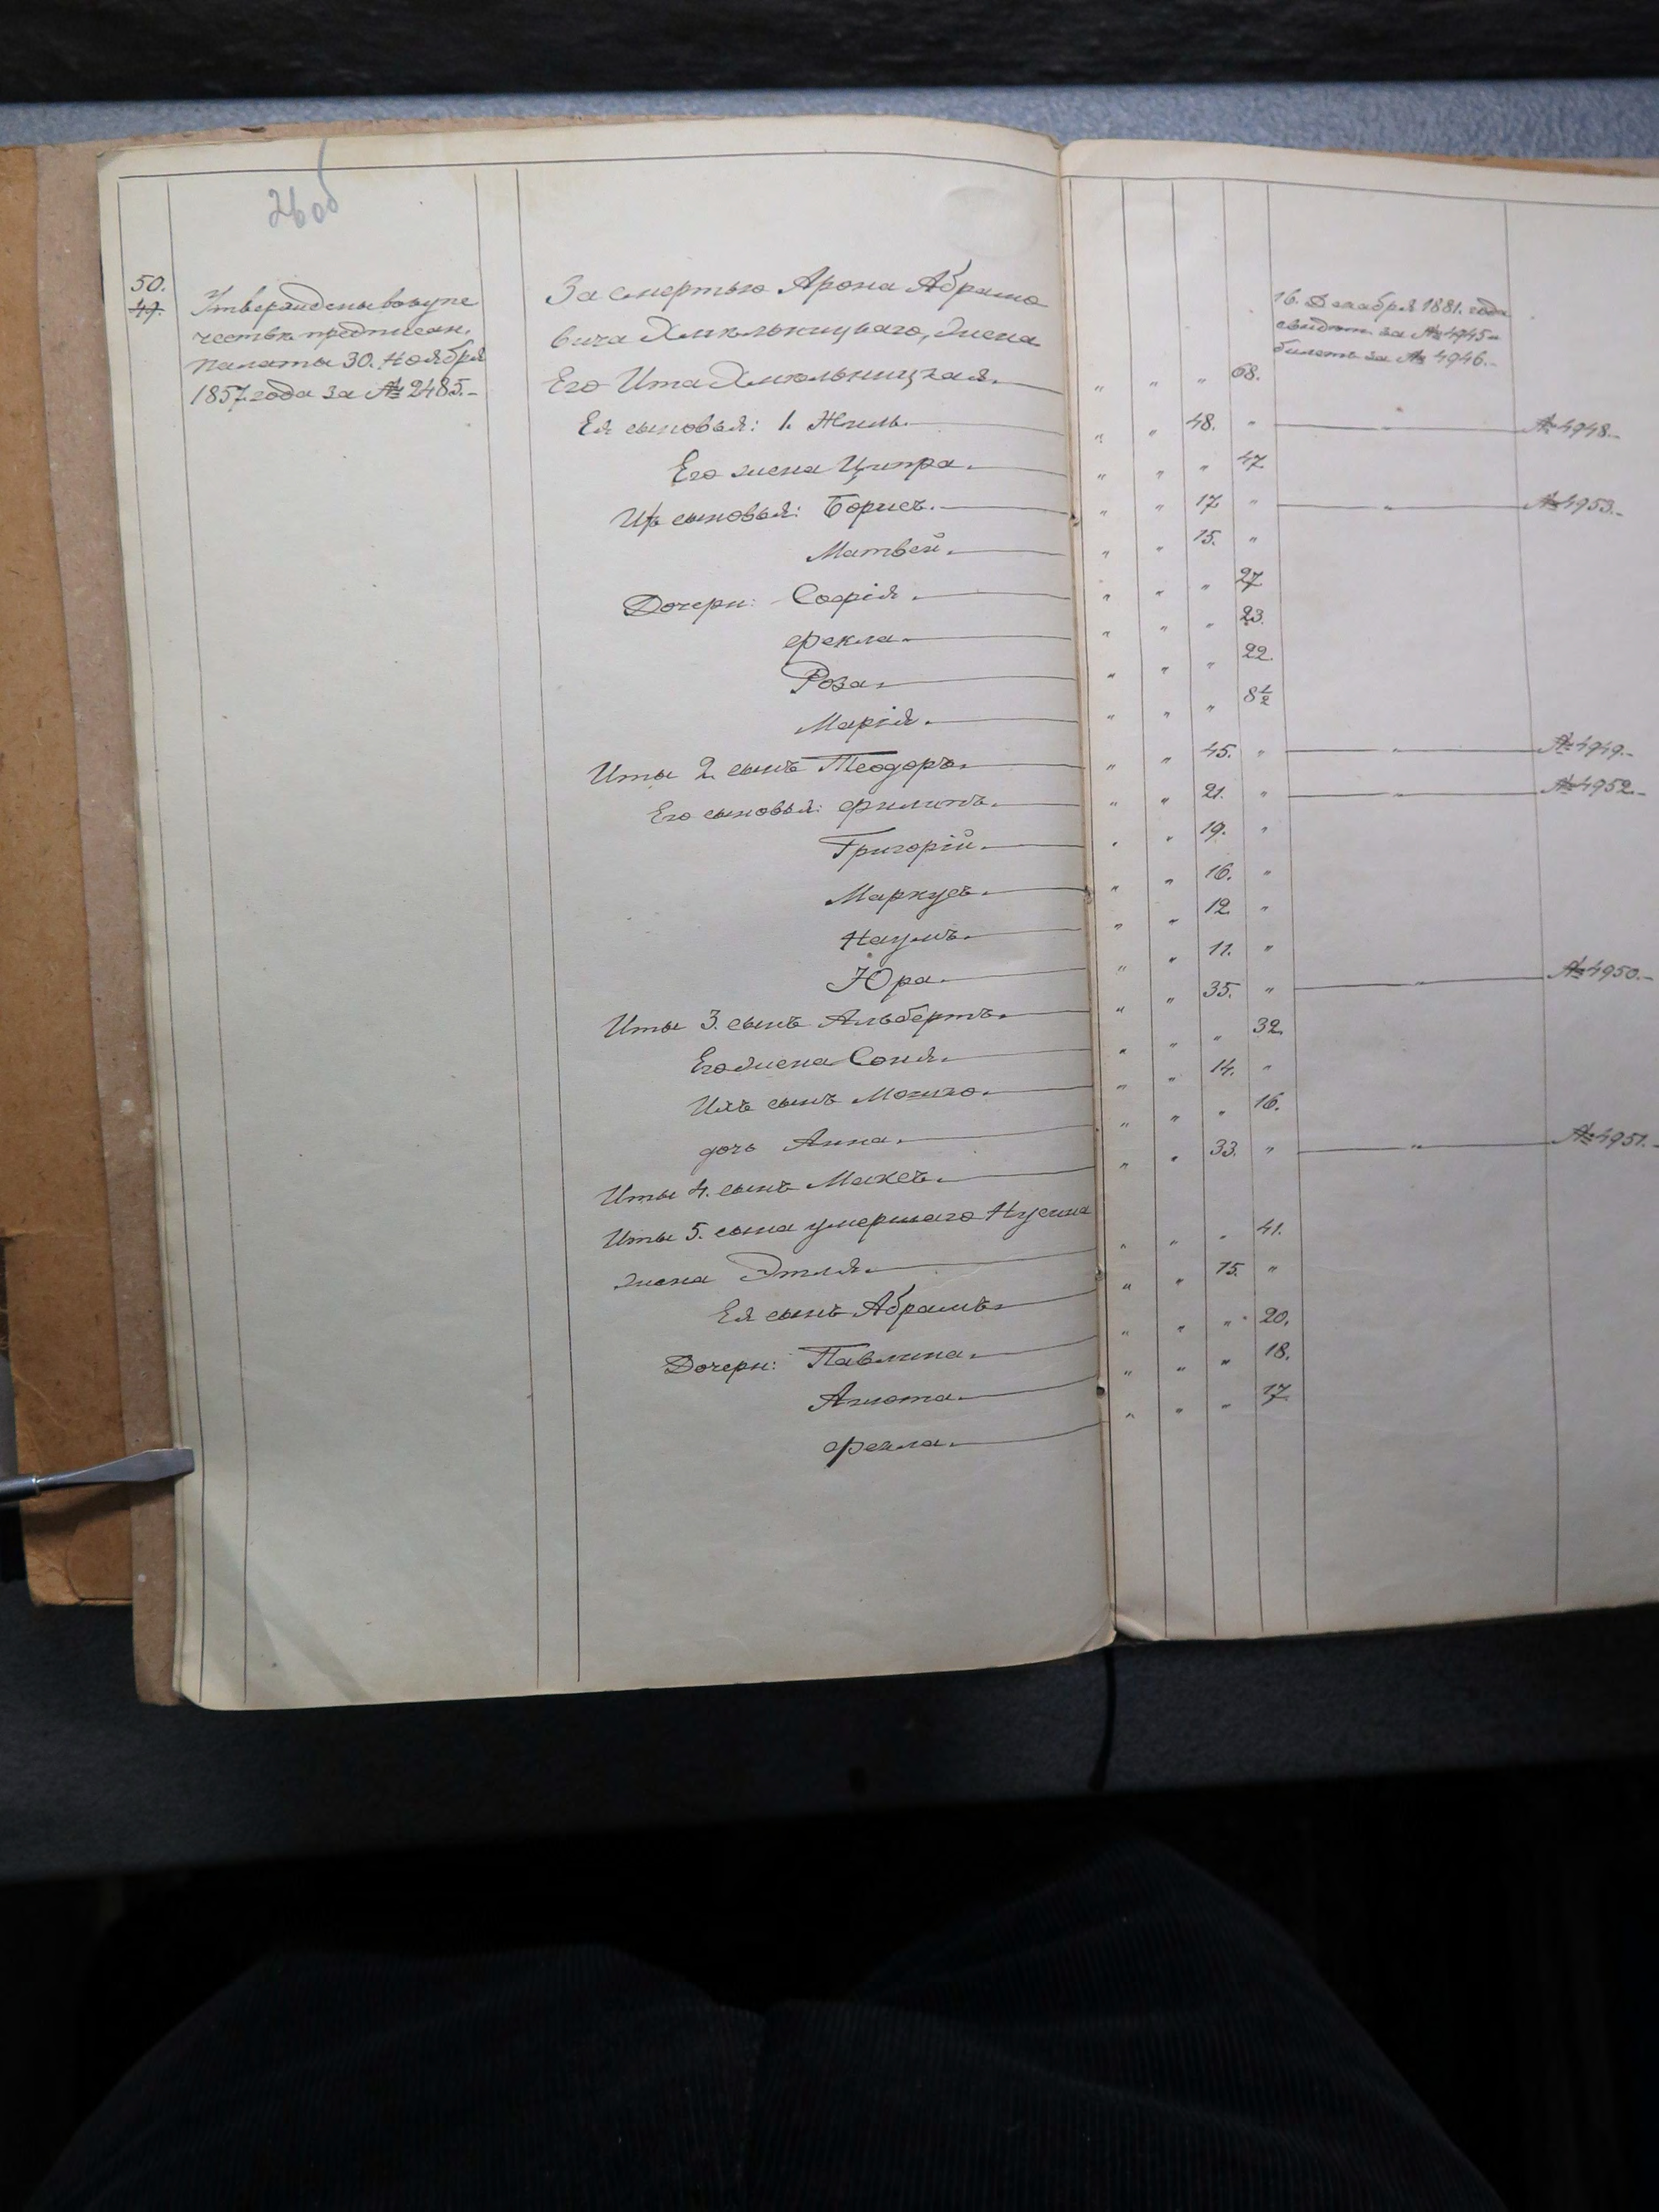 26 об
50.
49.
Утверждены въ купе
чествѣ предписан.
палаты 30. Ноября
1857 года за № 2485.-
За смертью Арона Абрамо
вича Хмѣльницкаго, жена
Его Ита Хмѣльницкая. " " " 68.
16. Декабря 1881. года
свидѣт. за № 4945-
билетъ за № 4946.-
Ея сыновья: 1. Хиль. " " 48. " " № 4948.-
Его жена Ципра. " " " 47
Ихъ сыновья: Борисъ. " " 17 " " № 4953.-
Матвей. " " 15. "
Дочери: Софія. " " " 27
Фекла. " " " 23.
Роза. " " " 22.
Марія. " " " 8½
Иты 2. сынъ Теодоръ. " " 45. " " № 4949.-
Его сыновья: Филипъ. " " 21. " " № 4952.-
Григорій. " " 19. "
Маркусъ. " " 16. "
Наумъ. " " 12. "
Юра. " " 11. "
Иты 3. сынъ Альбертъ. " " 35. " " № 4950.-
Его жена Соня. " " " 32.
Ихъ сынъ Мошко. " " 14. "
дочь Анна. " " " 16.
Иты 4. сынъ Максъ. " " 33. " " № 4951.-
Иты 5. сына умершаго Нусина
жена Этля. " " " 41.
Ея сынъ Абрамъ. " " 15. "
Дочери: Павлина. " " " 20.
Анюта. " " " 18.
Фекла. " " " 17.